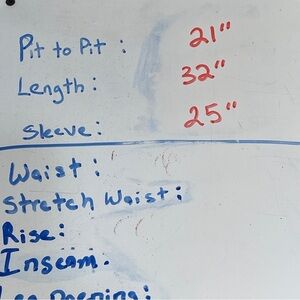 Pit to Pit : 21"
Length : 32"
Sleeve : 25"
Waist :
Stretch Waist :
Rise :
Inseam :
Leg Opening :